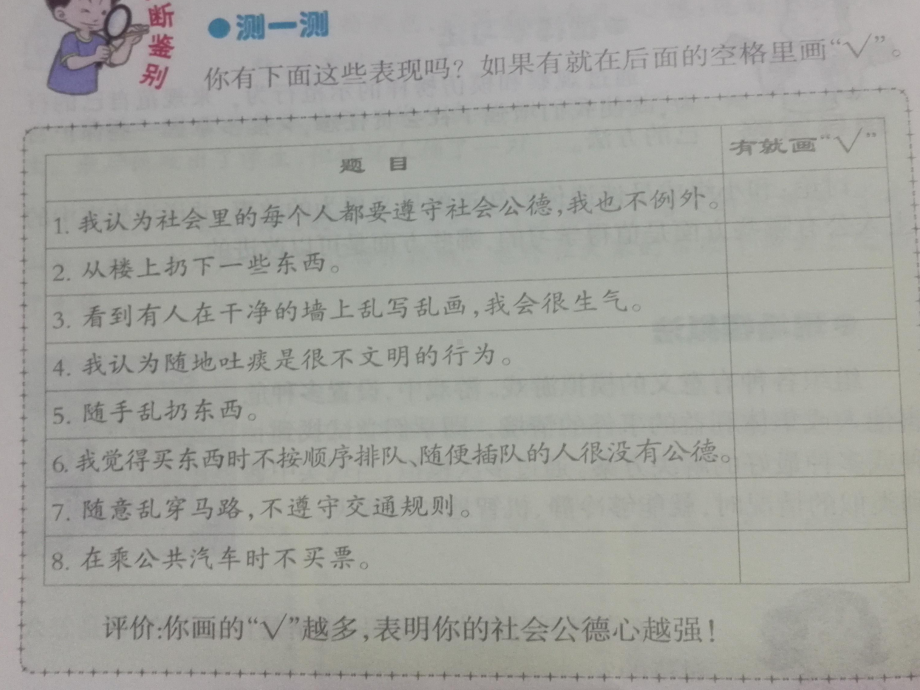 断鉴别
●测一测
你有下面这些表现吗？如果有就在后面的空格里画“√”。
题 目 有就画“√”
1. 我认为社会里的每个人都要遵守社会公德，我也不例外。
2. 从楼上扔下一些东西。
3. 看到有人在干净的墙上乱写乱画，我会很生气。
4. 我认为随地吐痰是很不文明的行为。
5. 随手乱扔东西。
6. 我觉得买东西时不按顺序排队、随便插队的人很没有公德。
7. 随意乱穿马路，不遵守交通规则。
8. 在乘公共汽车时不买票。
评价：你画的“√”越多，表明你的社会公德心越强！